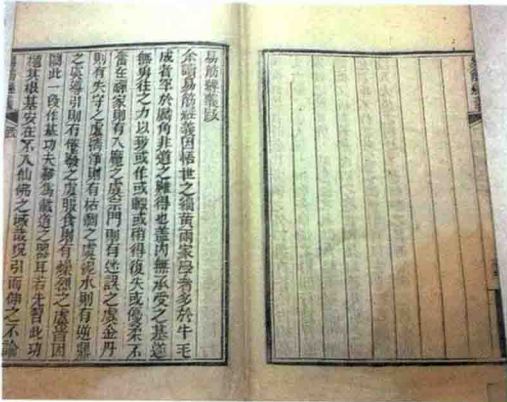 易筋經義跋
余讀易筋經義因悟世之緇黃兩家學者多於牛毛
成者罕於麟角非道之難得也蓋內無承受之基遂
無勇往之力以致或作或輟或稍得復失或優柔不
奮在禪家則有入魔之虞宗門則有迷誤之虞金丹
則有失守之虞清淨則有枯槁之虞泥水則有逆鼎
之虞導引則有倦廢之虞服食則有燥烈之虞皆因
闕此一段作基功夫難為載道之器耳若先習此功
植其根基安在不入仙佛之域哉況引而伸之不論
易筋經義